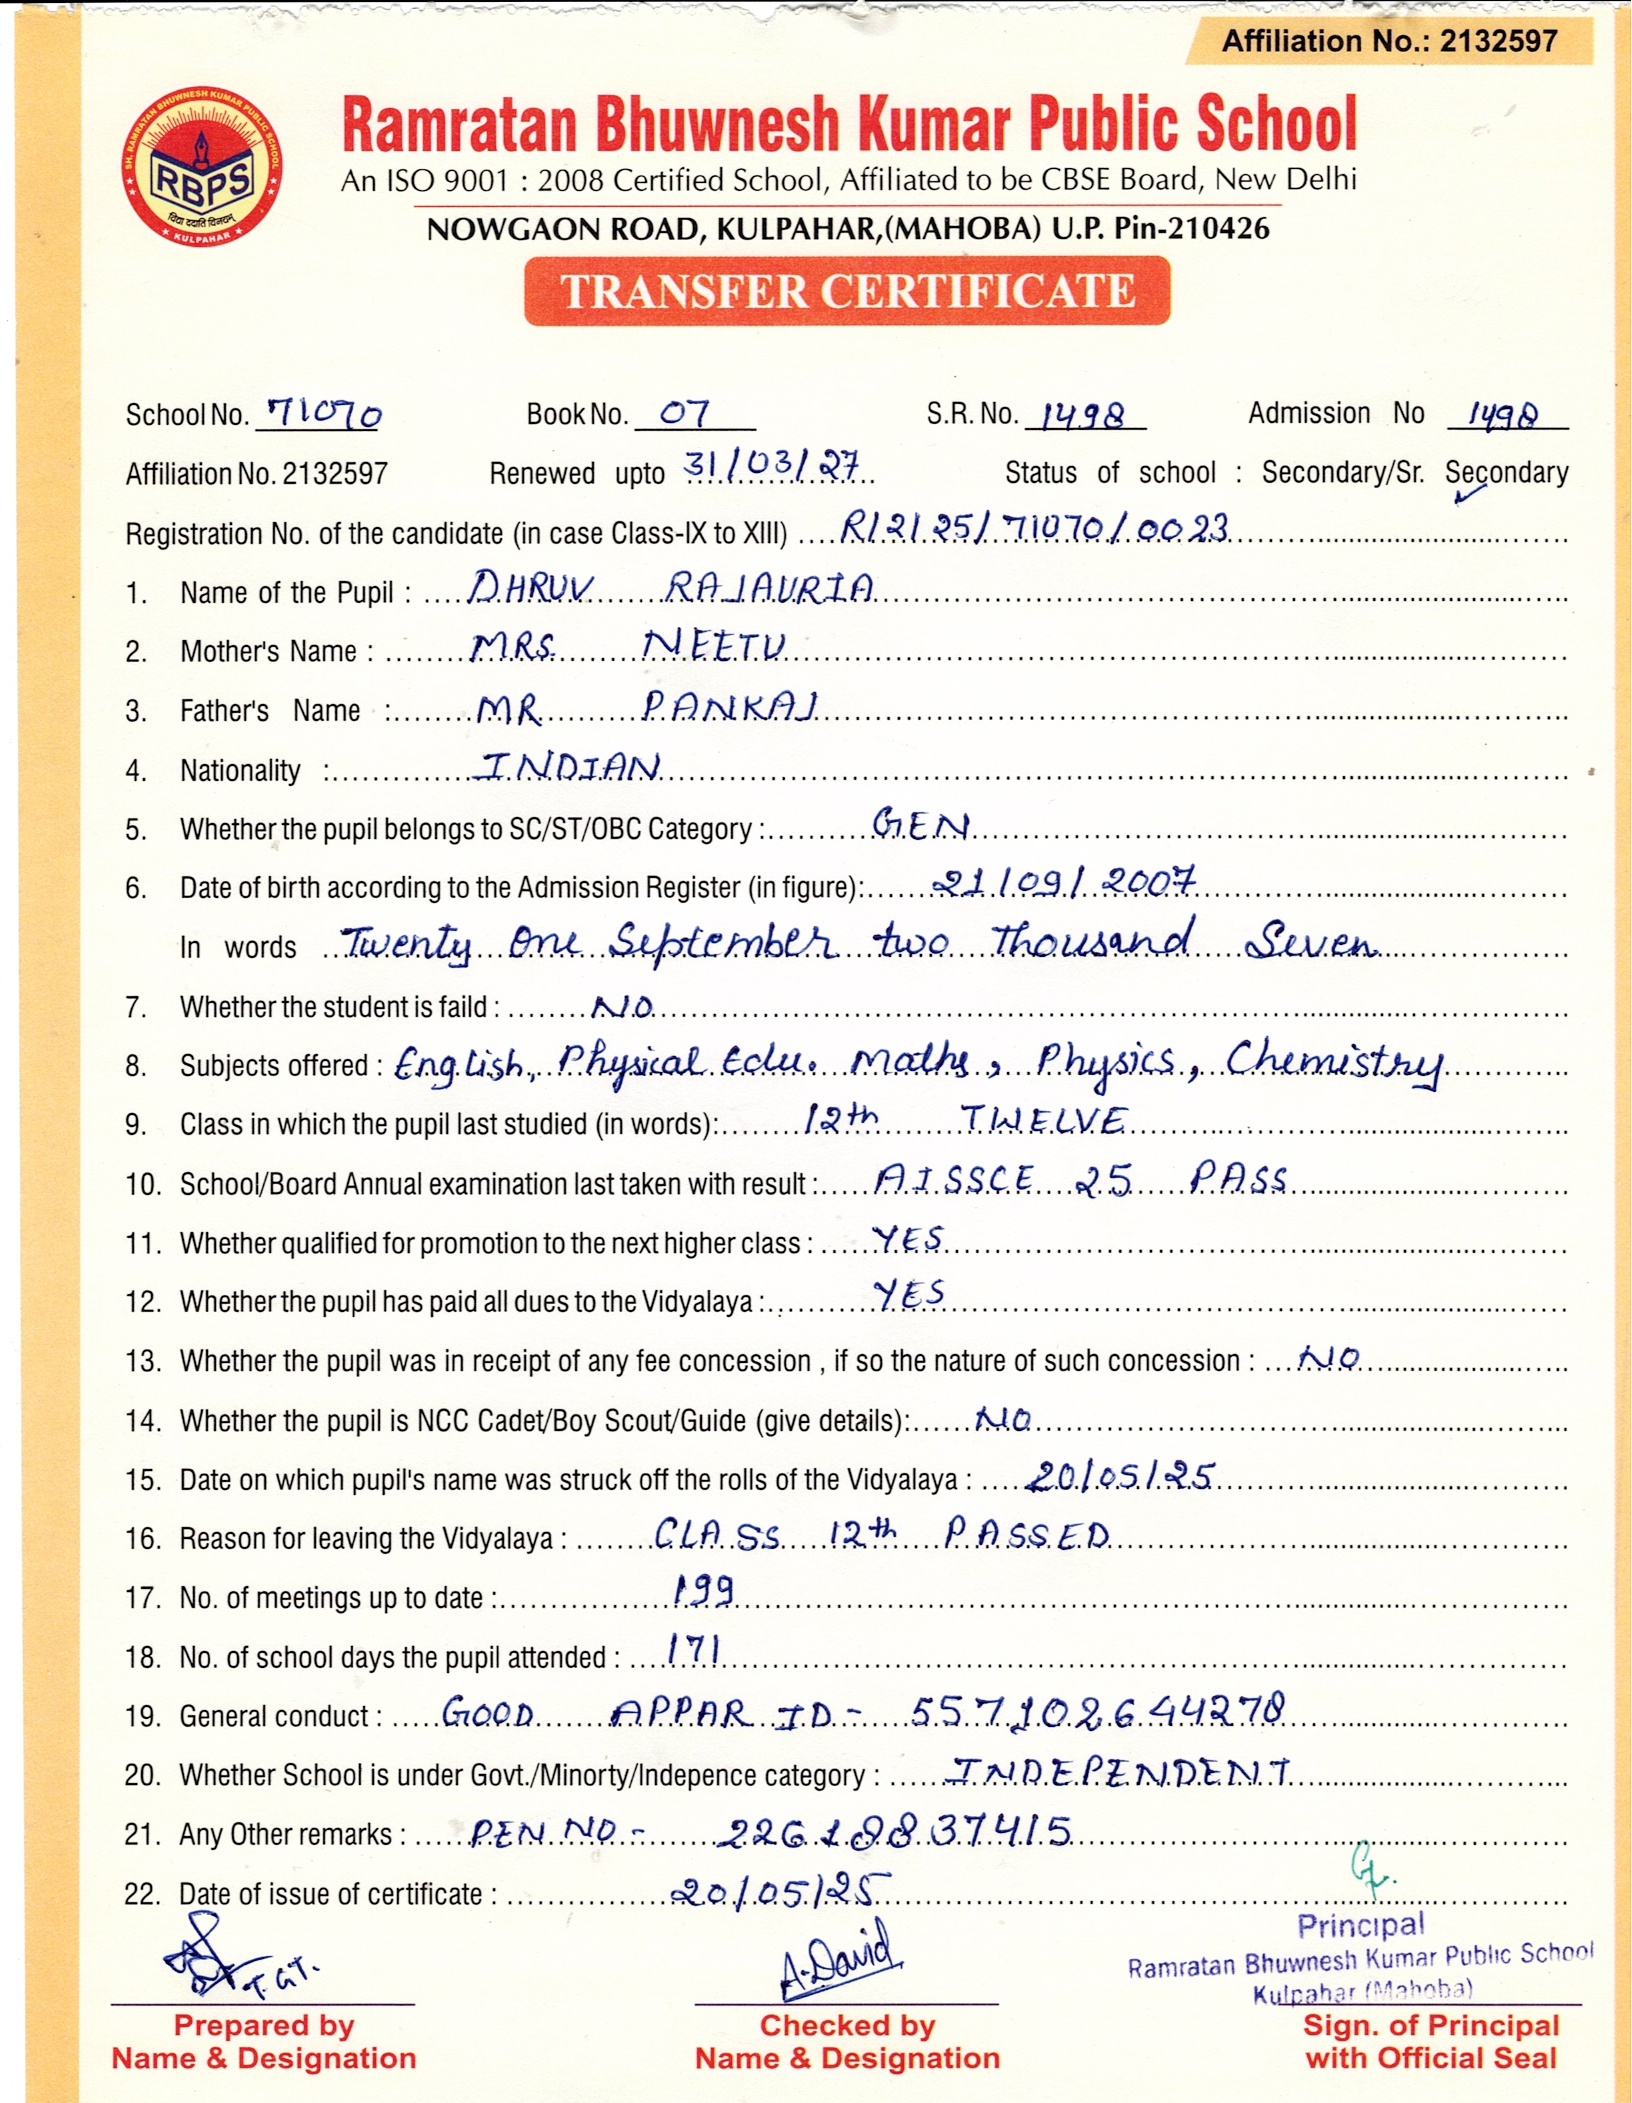 Affiliation No.: 2132597
SH. RAMRATAN BHUWNESH KUMAR PUBLIC SCHOOL
RBPS
विद्या ददाति विनयम्
KULPAHAR
Ramratan Bhuwnesh Kumar Public School
An ISO 9001 : 2008 Certified School, Affiliated to be CBSE Board, New Delhi
NOWGAON ROAD, KULPAHAR,(MAHOBA) U.P. Pin-210426
TRANSFER CERTIFICATE
School No. 71070 Book No. 07 S.R. No. 1498 Admission No 1498
Affiliation No. 2132597 Renewed upto 31/03/27 Status of school : Secondary/Sr. Secondary
Registration No. of the candidate (in case Class-IX to XIII) R/2/25/71070/0023
1. Name of the Pupil : DHRUV RAJAURIA
2. Mother's Name : MRS. NEETU
3. Father's Name : MR PANKAJ
4. Nationality : INDIAN
5. Whether the pupil belongs to SC/ST/OBC Category : GEN
6. Date of birth according to the Admission Register (in figure): 21/09/2007
In words Twenty One September two Thousand Seven
7. Whether the student is faild : NO
8. Subjects offered : English, Physical Edu. Maths, Physics, Chemistry
9. Class in which the pupil last studied (in words): 12th TWELVE
10. School/Board Annual examination last taken with result : AISSCE 25 PASS
11. Whether qualified for promotion to the next higher class : YES
12. Whether the pupil has paid all dues to the Vidyalaya : YES
13. Whether the pupil was in receipt of any fee concession , if so the nature of such concession : NO
14. Whether the pupil is NCC Cadet/Boy Scout/Guide (give details): NO
15. Date on which pupil's name was struck off the rolls of the Vidyalaya : 20/05/25
16. Reason for leaving the Vidyalaya : CLASS 12th PASSED
17. No. of meetings up to date : 199
18. No. of school days the pupil attended : 171
19. General conduct : GOOD APPAR ID - 557102644278
20. Whether School is under Govt./Minorty/Indepence category : INDEPENDENT
21. Any Other remarks : PEN NO - 22618837415
22. Date of issue of certificate : 20/05/25
T.G.T. A. David
Principal
Ramratan Bhuwnesh Kumar Public School
Kulpahar (Mahoba)
Prepared by Checked by Sign. of Principal
Name & Designation Name & Designation with Official Seal